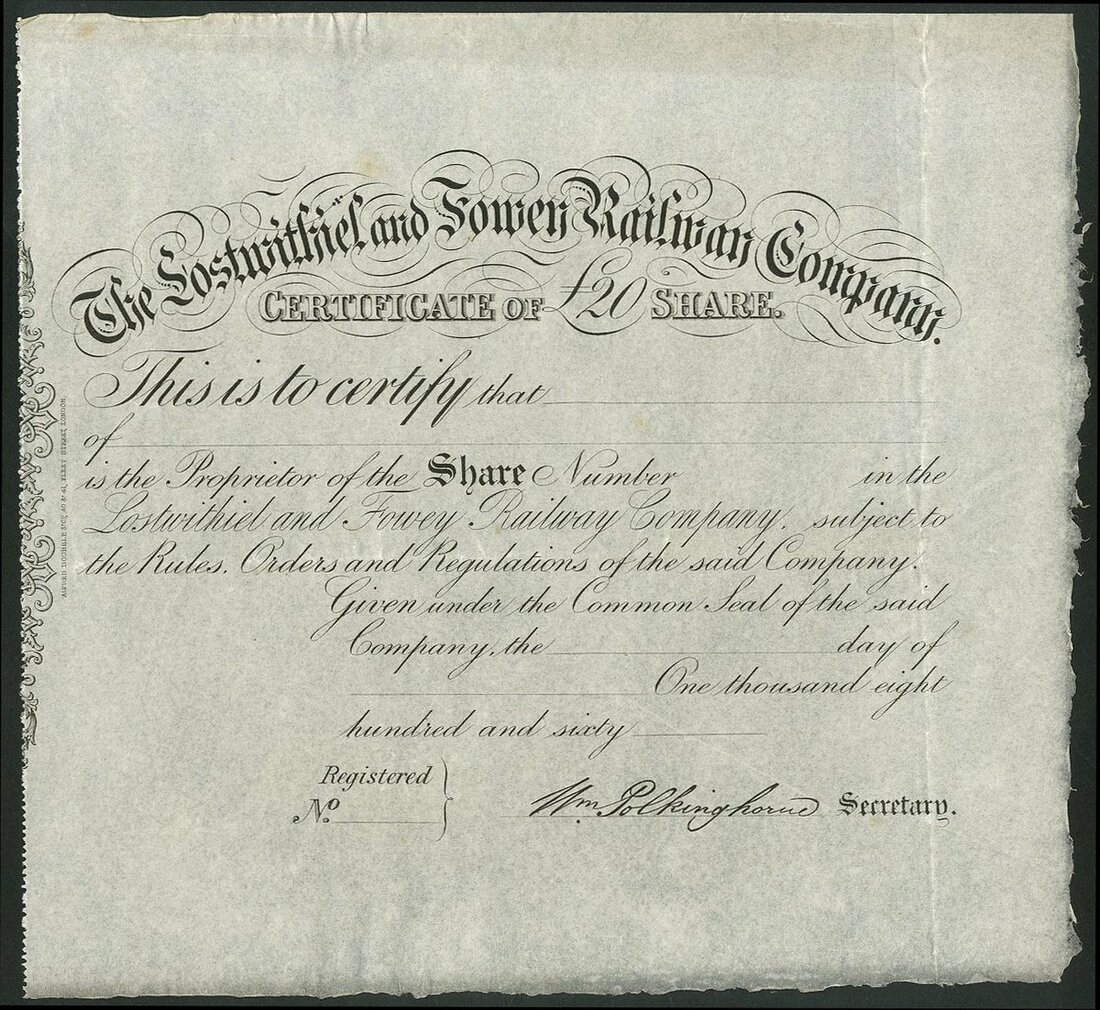 The Lostwithiel and Fowey Railway Company.
CERTIFICATE OF £20 SHARE.
This is to certify that
of
is the Proprietor of the Share Number in the
Lostwithiel and Fowey Railway Company, subject to
the Rules, Orders and Regulations of the said Company.
Given under the Common Seal of the said
Company, the day of
One thousand eight
hundred and sixty
Registered
No.
Wm. Polkinghorne Secretary.
ALFRED DOUBBLE 40 & 41, FLEET STREET, LONDON.